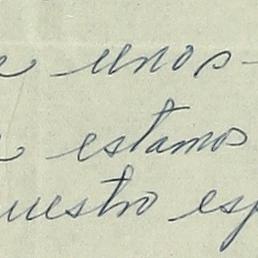 unos-
estamos
uestro esp